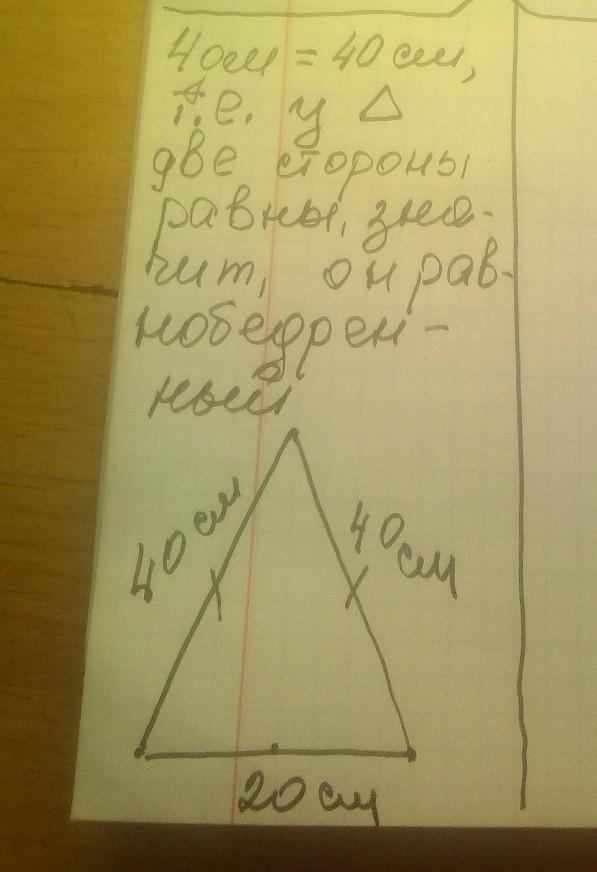 40см = 40см,
т.е. у △
две стороны
равны, зна-
чит, он рав-
нобедрен-
ный
40см
40см
20см